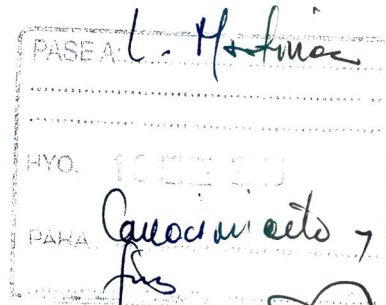 PASE A: L. Martinez
HYO.
PARA Conocimiento y
fines